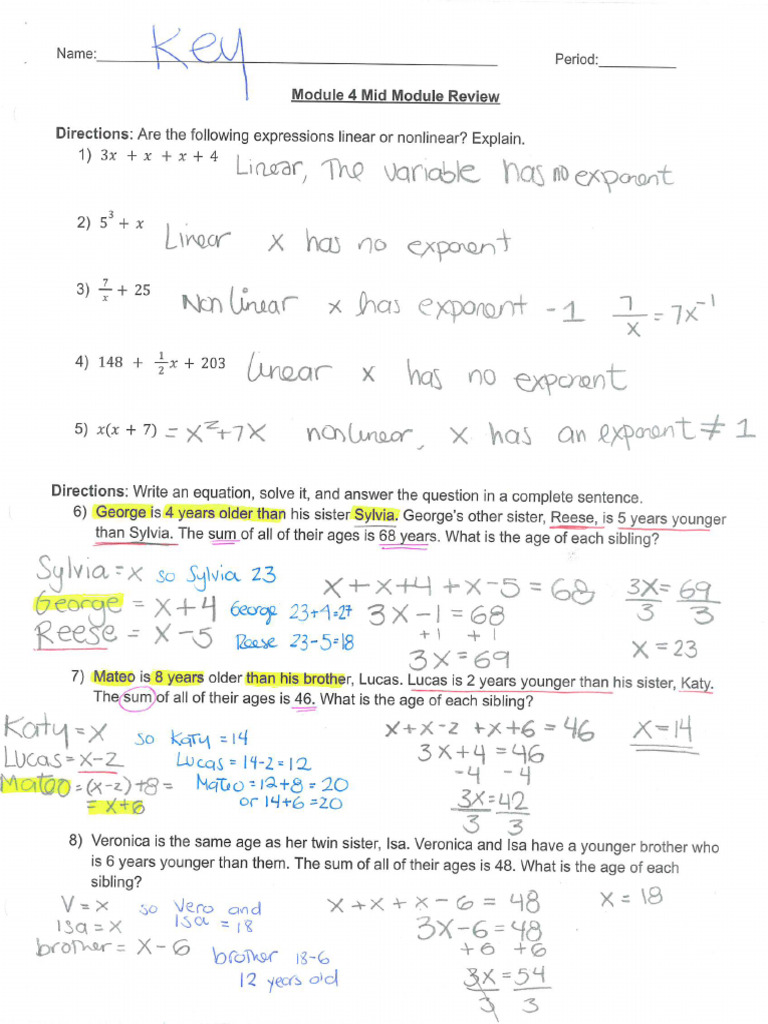 Name: Key Period:
Module 4 Mid Module Review
Directions: Are the following expressions linear or nonlinear? Explain.
1) 3x + x + x + 4 Linear, The variable has no exponent
2) 5³ + x Linear x has no exponent
3) 7/x + 25 Non linear x has exponent -1 7/x = 7x⁻¹
4) 148 + 1/2 x + 203 linear x has no exponent
5) x(x + 7) = x²+7x nonlinear, x has an exponent ≠ 1
Directions: Write an equation, solve it, and answer the question in a complete sentence.
6) George is 4 years older than his sister Sylvia. George's other sister, Reese, is 5 years younger
than Sylvia. The sum of all of their ages is 68 years. What is the age of each sibling?
Sylvia = x so Sylvia 23 x + x+4 + x-5 = 68 3x/3 = 69/3
George = x+4 George 23+4=27 3x-1 = 68
Reese = x-5 Reese 23-5=18 +1 +1 x = 23
3x = 69
7) Mateo is 8 years older than his brother, Lucas. Lucas is 2 years younger than his sister, Katy.
The sum of all of their ages is 46. What is the age of each sibling?
Katy = x so Katy = 14 x + x-2 + x+6 = 46 x = 14
Lucas = x-2 Lucas = 14-2 = 12 3x+4 = 46
Mateo = (x-2)+8 = Mateo = 12+8 = 20 -4 -4
= x+6 or 14+6 = 20 3x/3 = 42/3
8) Veronica is the same age as her twin sister, Isa. Veronica and Isa have a younger brother who
is 6 years younger than them. The sum of all of their ages is 48. What is the age of each
sibling?
V = x so Vero and x + x + x - 6 = 48 x = 18
Isa = x Isa = 18 3x-6 = 48
brother = x-6 brother 18-6 +6 +6
12 years old 3x/3 = 54/3